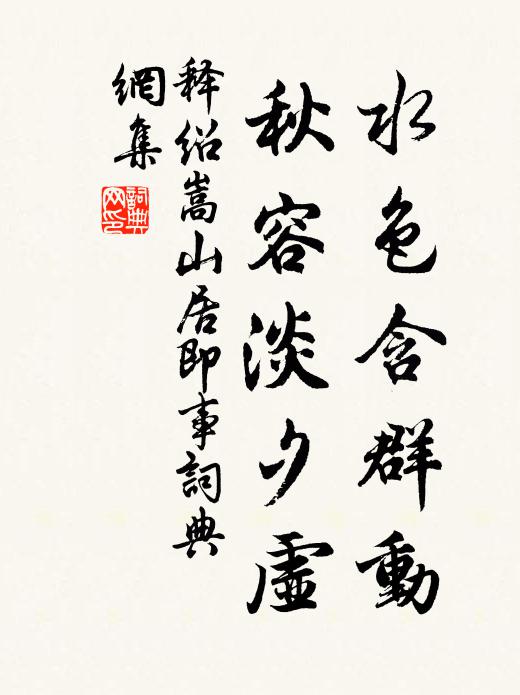 水色含群動
秋容淡夕虛
释紹嵩山居即事詞典
網集
詞典
网印